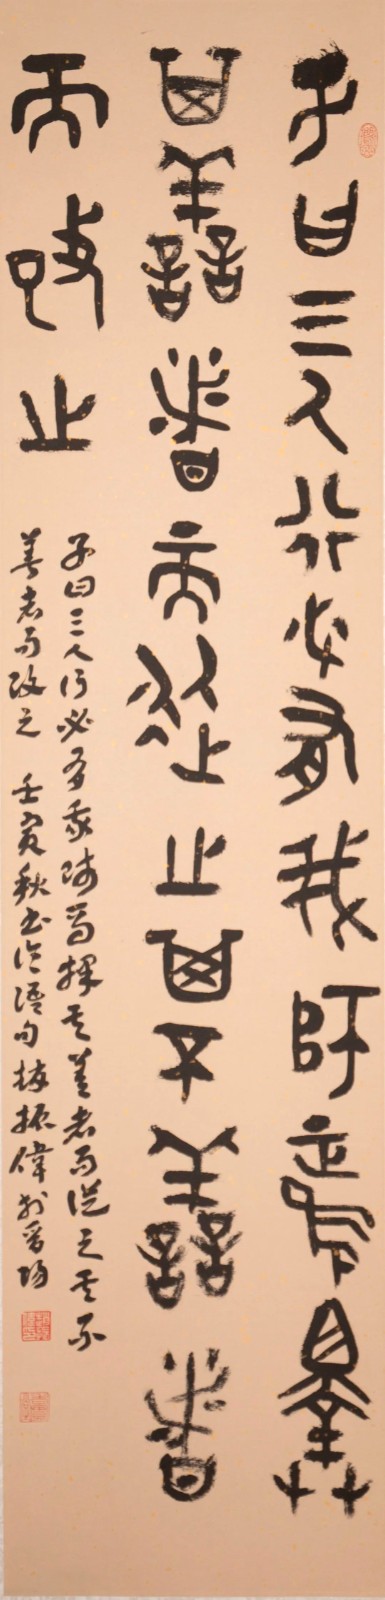 子曰三人行必有我師焉擇
其善者而從之其不善者
而改之
子曰三人行必有我师焉择其善者而從之其不
善者而改之 壬寅秋书论语句 振偉於晋阳